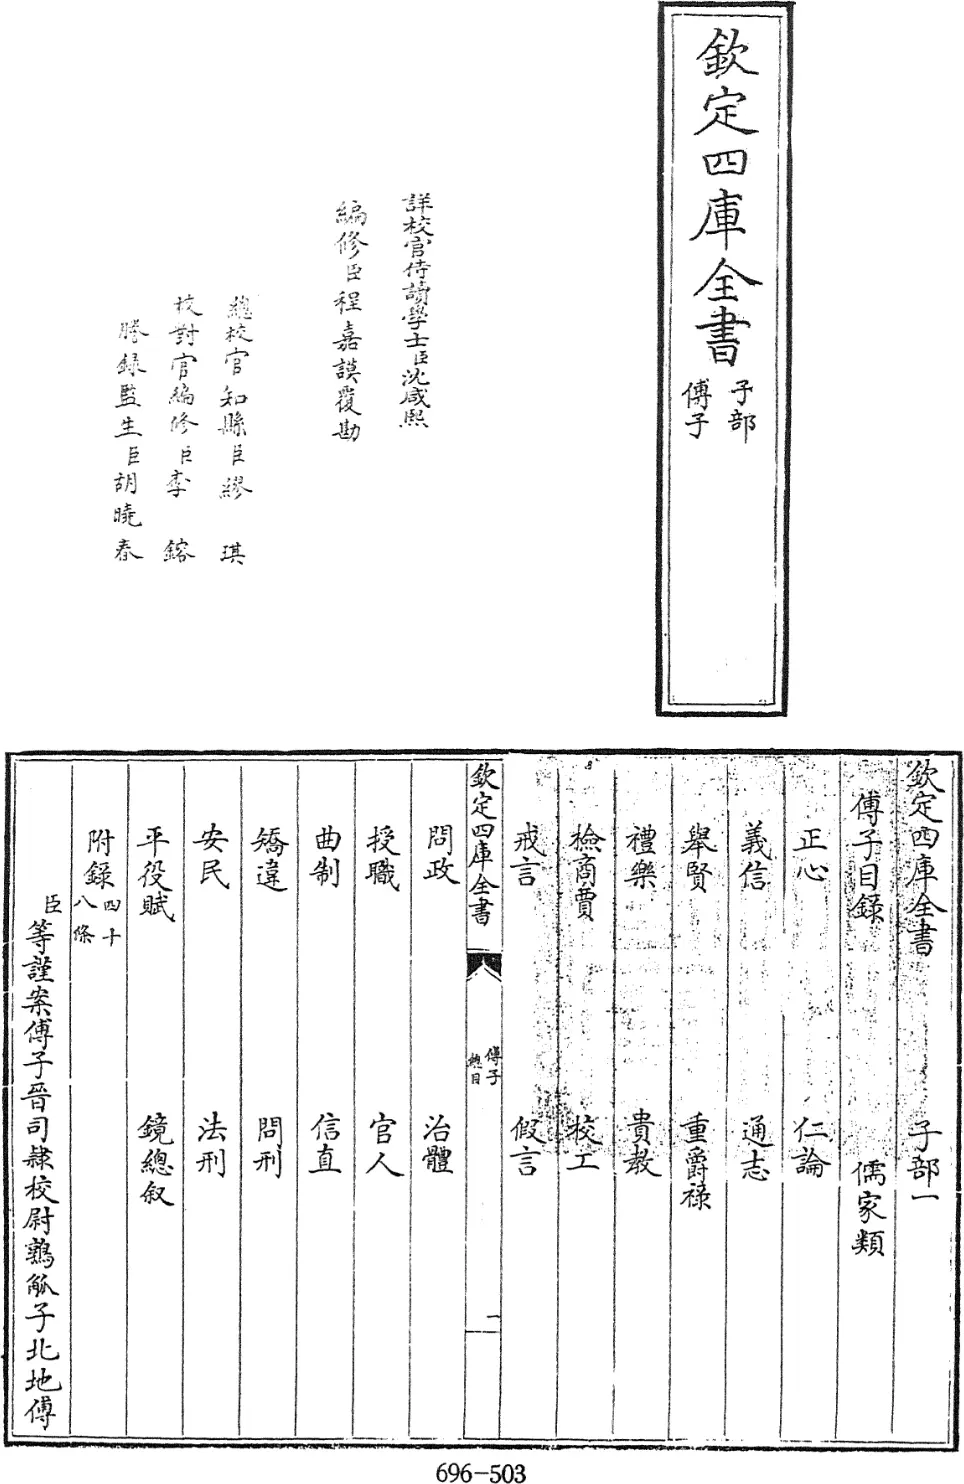 欽定四庫全書
子部
傅子
詳校官侍讀學士臣沈咸熙
編修臣程嘉謨覆勘
總校官知縣臣繆琪
校對官編修臣李鎔
謄錄監生臣胡曉春
欽定四庫全書 子部一
傅子目錄 儒家類
正心 仁論
義信 通志
舉賢 重爵祿
禮樂 貴教
檢商賈 校工
戒言 假言
欽定四庫全書
傅子
總目
一
問政 治體
授職 官人
曲制 信直
矯違 問刑
安民 法刑
平役賦 鏡總叙
附錄四十八條
臣等謹案傅子晉司隸校尉鶉觚子北地傅
696-503